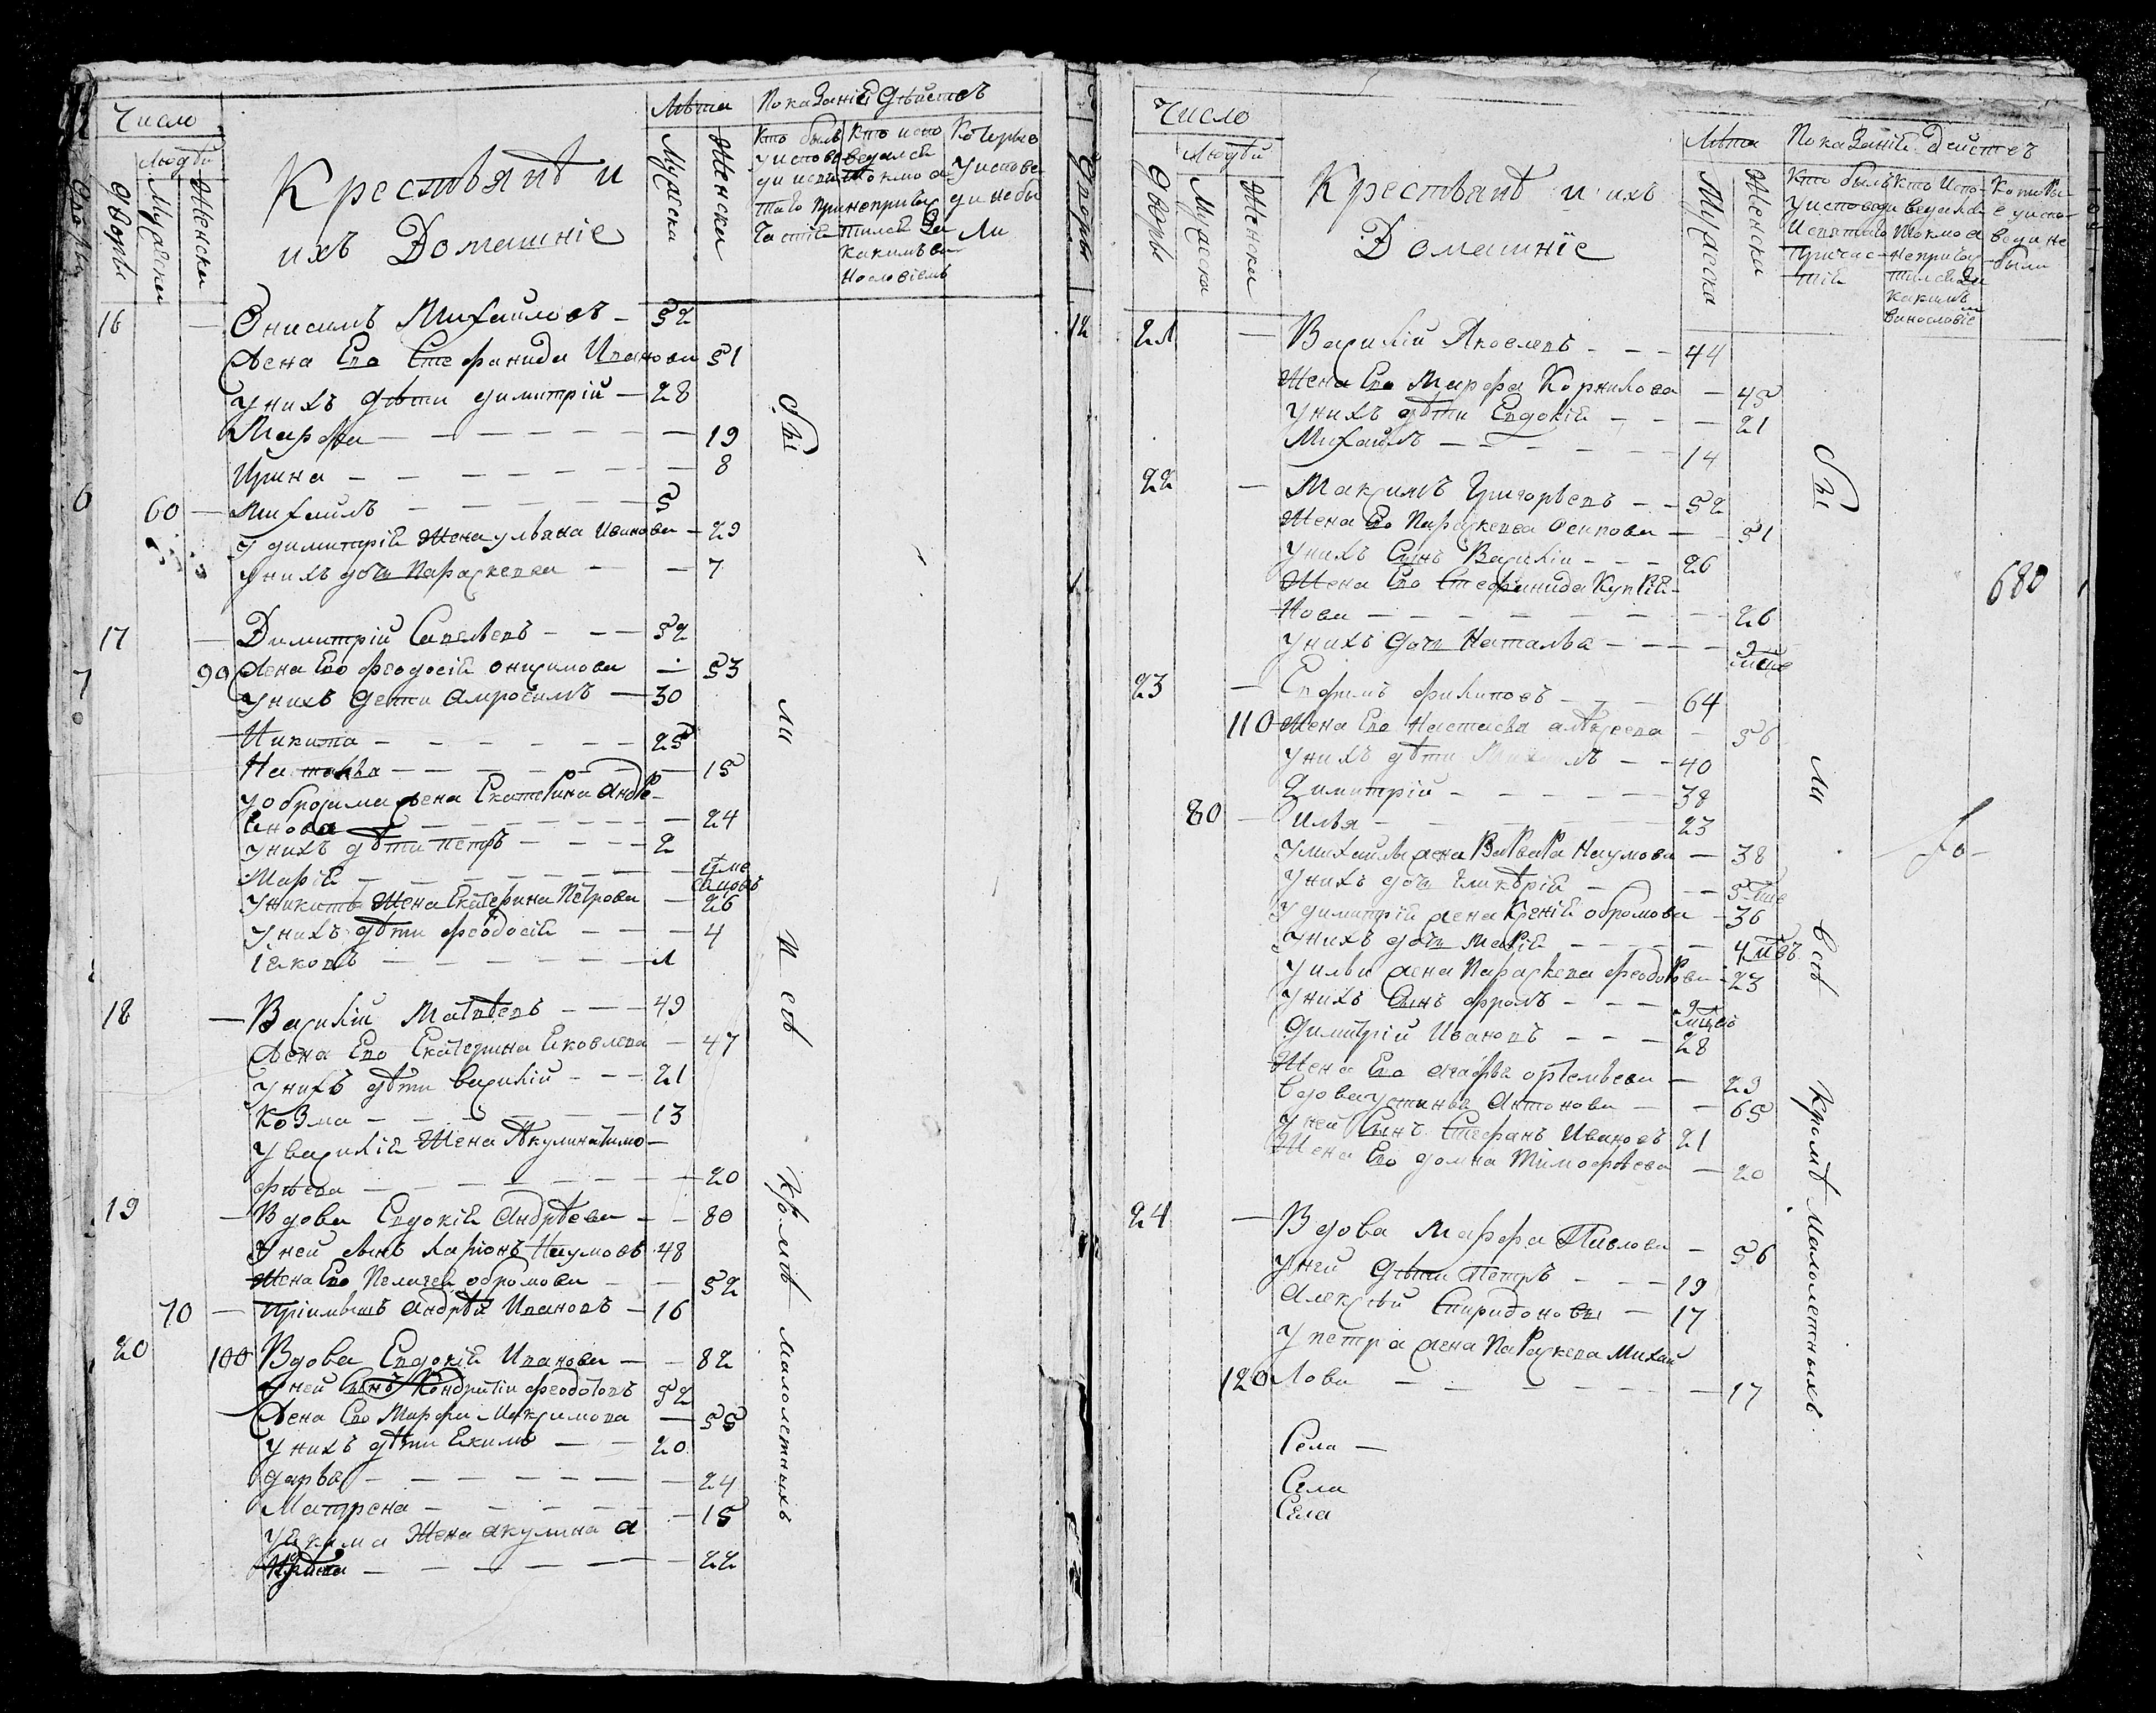 Число
Людѣй
Дворы
Мужеска
Женски
Крестьянѣ и
ихъ Домашніе
Лѣта
Мужеска
Женски
Показаній действъ
Кто былъ
у исповѣ
ди и
причастія
Кто испо
ведался
токмо а
не приоб
щился и За
какимъ ви
нословіемъ
Которые
у испове
ди не бы
ли
16 — Онисимъ Михайловъ — 52
Жена Его Стефанида Иванова 51
У нихъ дѣти димитрій — 28
Марфа — 19
Ирина — 8
60 — Михаилъ — 5
У димитрія Жена ульяна Иванова — 29
у нихъ дочь Параскева — 7
17 — Димитрій Савельевъ — 52
90 Жена Его феодосія онисимова — 53
У нихъ дети Амросимъ — 30
Никита — 25
Наталья — 15
У Жена Екатерина
— 24
у нихъ дѣти петръ — 2
Марія —
У никиты Жена Екатерина Петрова — 26
У нихъ дѣти феодосія — 4
Іаковъ — 1
18 — Василій Матвѣевъ — 49
Жена Его Екатерина Яковлева — 47
У нихъ дѣти василій — 21
Козма — 13
У василія Жена Акулина тимо—
фѣева — 20
19 — Вдова Евдокія Андрѣева — 80
У ней сынъ Ларіонъ Наумовъ 48
Жена Его Пелагея обромова — 52
70 — Пріимышъ Андрѣй Ивановъ — 16
20 100 Вдова Евдокія Иванова — 82
У ней Сынъ Кондратій феодотовъ 52
— Жена Его Марфа Максимова — 55
У нихъ дѣти Екимъ — 20
дарья — 24
Матрена — 15
У Екима Жена Акулина а
— 22
Бы
ли
И
всѣ
Кромѣ
малолетныхъ
Число
Людѣй
Дворы
Мужеска
Женски
Крестьянѣ и ихъ
Домашніе
Лѣта
Мужеска
Женски
Показаній Действъ
Кто былъ
у исповѣди
и
Причас—
тія
Кто Испо—
ведался
токмо а
не приоб
щился За
какимъ
винословіе
м
Которы
е у испо—
веди не
были
21 — Василій Яковлевъ — 44
Жена Его Марфа Корнилова — 45
У нихъ дѣти Евдокія — 21
Михаилъ — 14
22 — Максимъ Григорьевъ — 52
Жена Его Параскева Осипова — 51
У нихъ Сынъ Василій — 26
Жена Его Стефанида Купрія—
нова — 26
У нихъ дочь Наталья — 9
680
23 — Ефимъ филиповъ — 64
110 Жена Его Настасья андреева — 56
У нихъ дѣти Михаилъ — 40
Димитрій — 38
80 — Илья — 23
У михаилы жена Варвара Наумова — 38
У нихъ дочь Гликерія — 5
У димитрія жена Ксенія обромова — 36
У нихъ дочь Марія — 4
У ильи жена Параскева феодорова 23
У нихъ Сынъ фролъ — 9
Димитрій Ивановъ — 28
Жена Его агафья ортемьева — 29
Вдова устинья Антонова — 65
У ней Сынъ Стефанъ Ивановъ 21
Жена Его домна Тимофѣева — 20
24 — Вдова Марфа Павлова — 56
У ней Дѣти Петръ — 19
Алексѣй Спиридоновы — 17
У петра жена Параскева Михаи
120 лова — 17
Села —
Села
Села
Бы
ли
всѣ
Кромѣ
Малолетныхъ